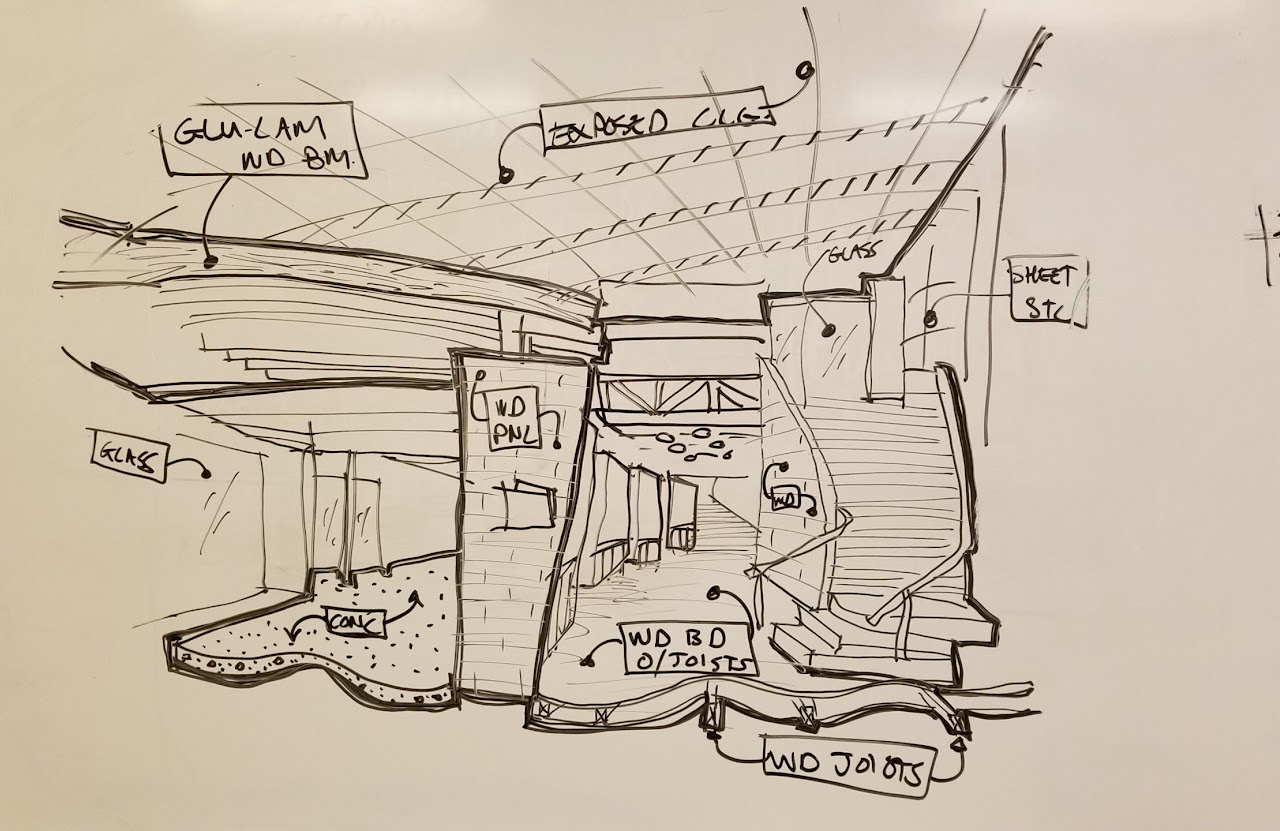 GLU-LAM
WD BM.
EXPOSED CLG
GLASS
SHEET
STL
WD
PNL
GLASS
WD
CONC
WD BD
O/JOISTS
WD JOISTS